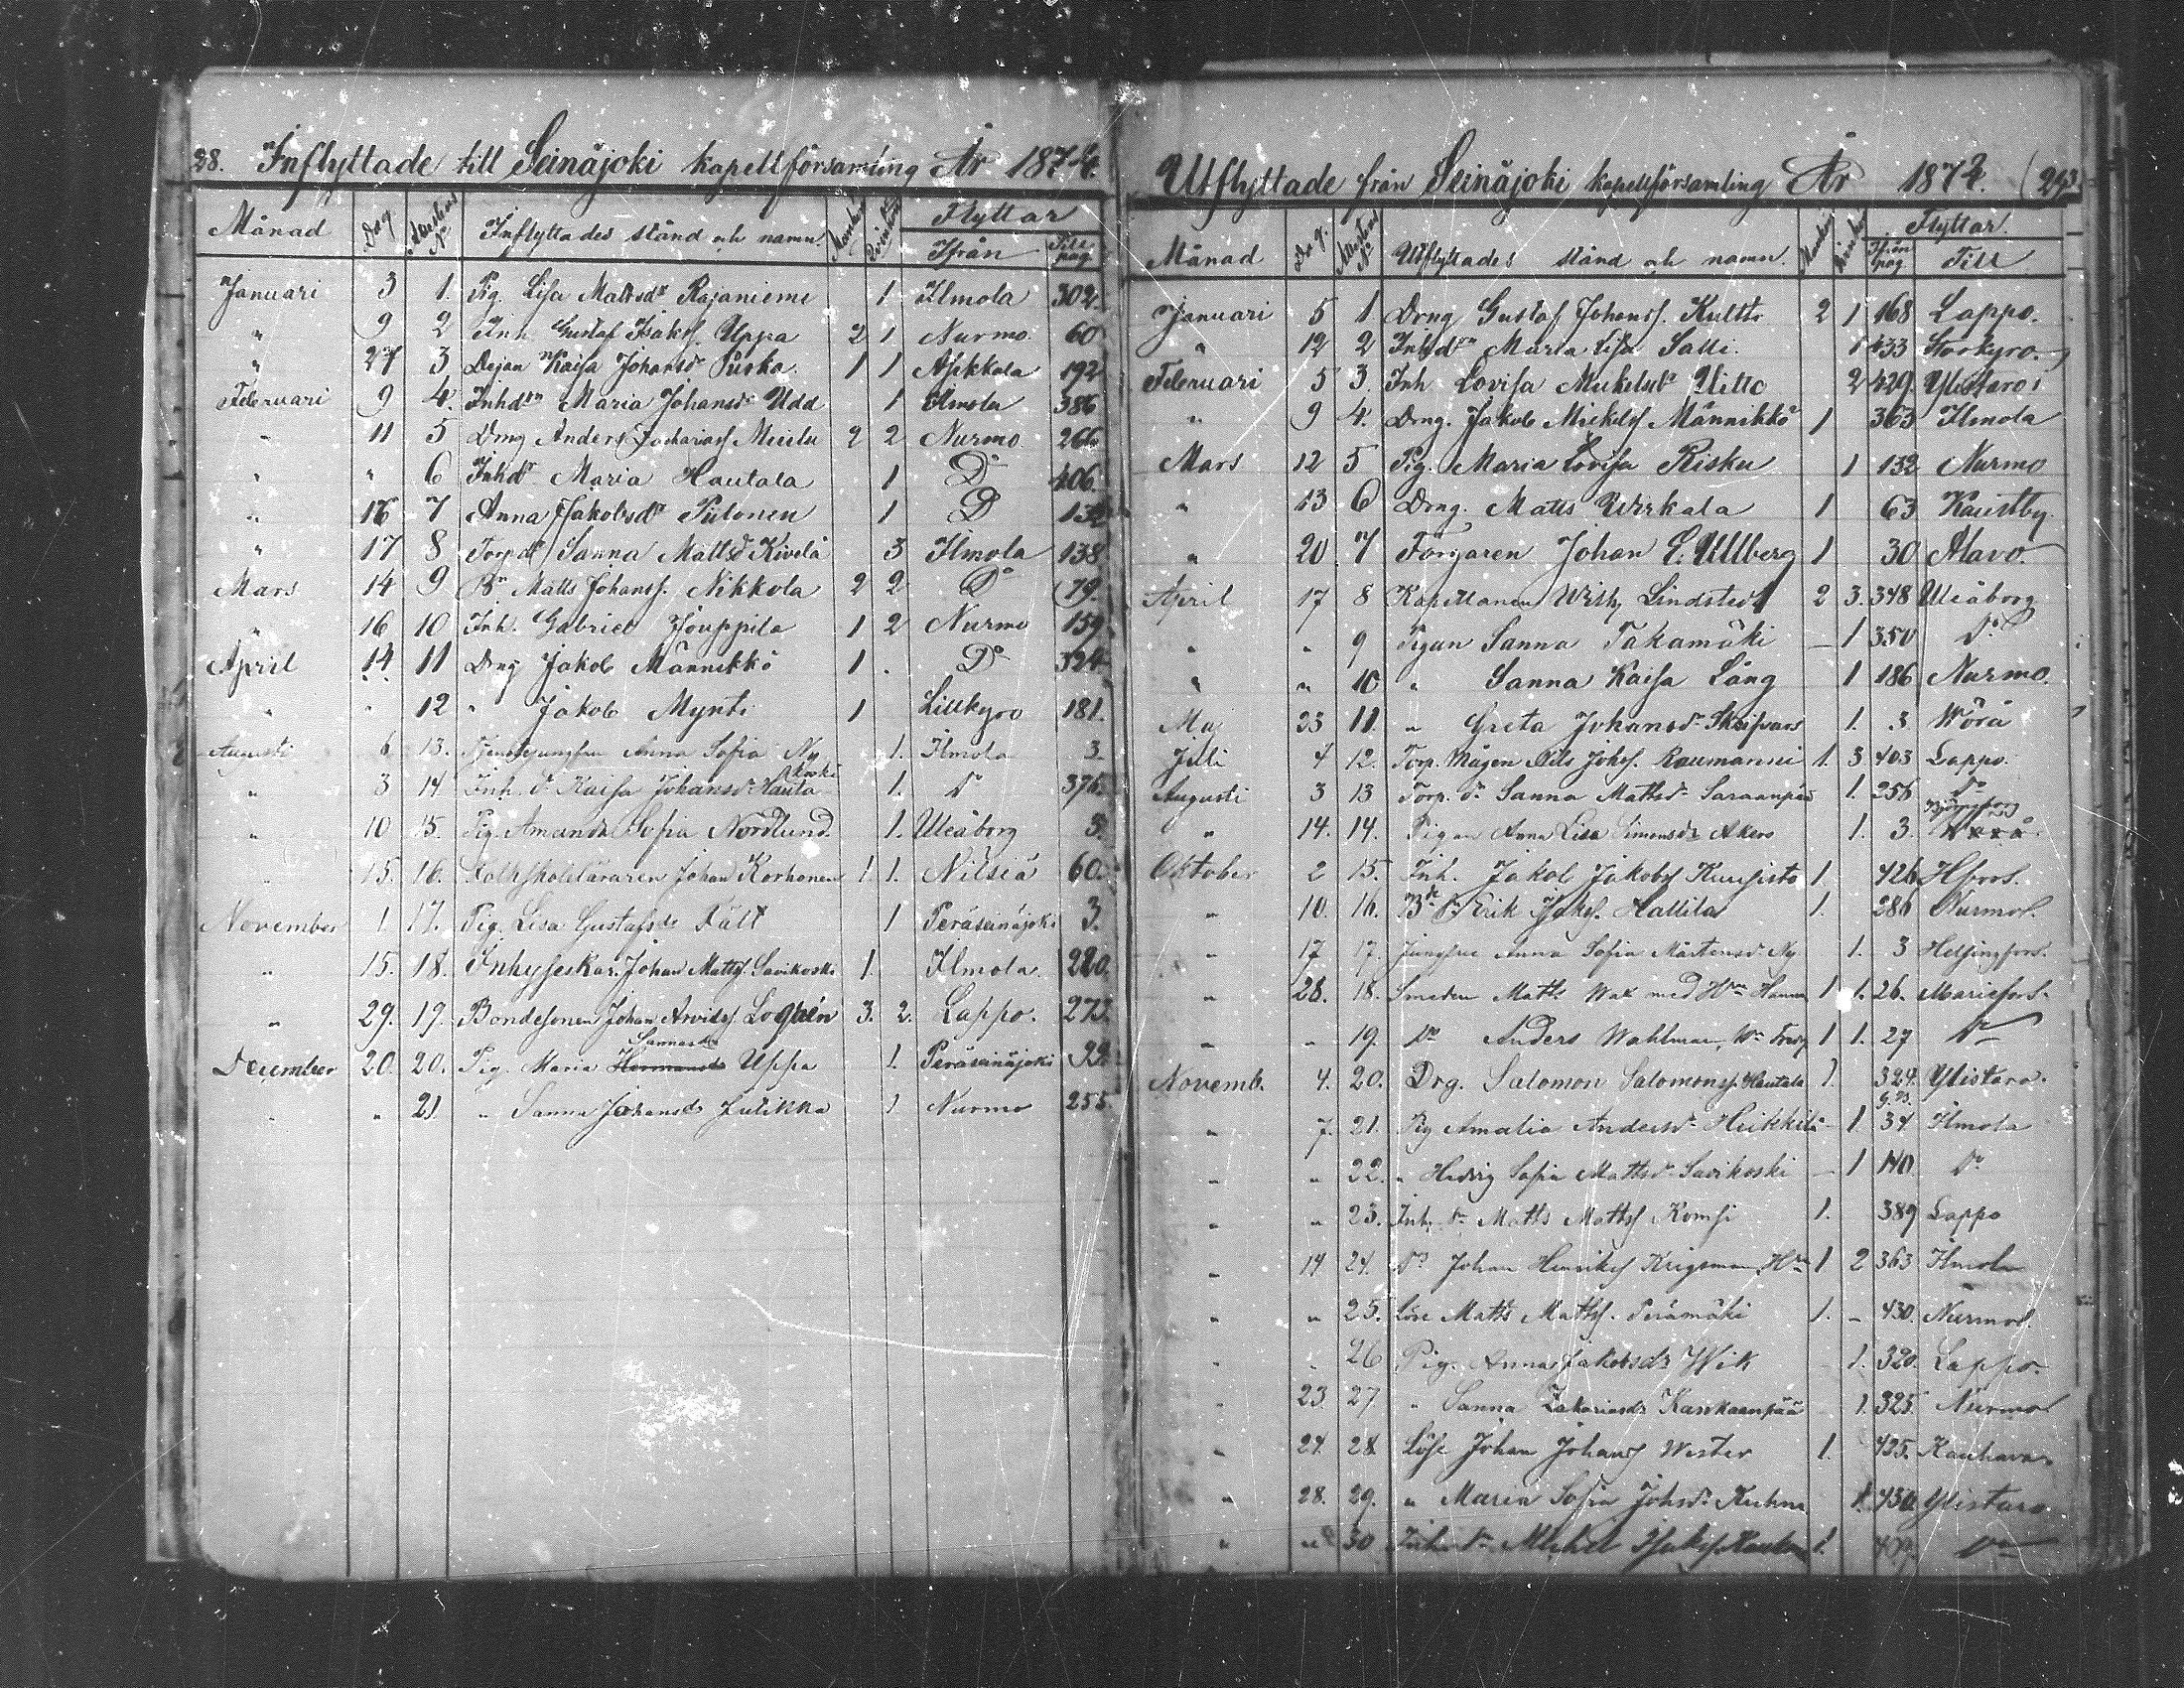 28. Inflyttade till Seinäjoki kapellförsamling År 1874.
Månad Dag Attestens No Inflyttades stånd och namn. Mankön Qvinkön Flyttar
Ifrån Till pag
Januari 3 1. Pig. Lisa Mattsdr Rajaniemi 1 Ilmola 302
" 9 2 Inh. Gustaf Isaksf. Uppa 2 1 Nurmo 60
" 27 3 Dejan Kaisa Johansdr 1 1 Asikkala 192
Februari 9 4. Inhdrn Maria Johansdr Udd 1 Ilmola 386
" 11 5 Drng Anders Zachariasf 2 2 Nurmo 266
" " 6 Inhdr Maria Hautala 1 Do 406.
" 16 7 Anna Jakobsdr Piilonen 1 Do
" 17 8 Torpdr Sanna Mattsdr Kivelä 3 Ilmola 138
Mars 14 9 Bn Matts Johansf. Nikkola 2 2 Do 79.
" 16 10 Inh. Gabriel Jouppila 1 2 Nurmo 159.
April 14 11 Drng Jakob Männikkö 1 . Do 324
" " 12 " Jakob Mynti 1 Lillkyro 181.
Augusti 6 13. Tjenstejungfrun Anna Sofia Ny 1. Ilmola 3.
" 3 14 Inh. dr Kaisa Johansdr Rautakoski 1. Do 376.
" 10 15. Pig. Amanda Sofia Nordlund 1. Uleåborg 3.
" 15. 16. Folkskoleläraren Johan Korhonen 1. 1. Nilsiä 60.
November 1 17. Pig. Lisa Gustafsdr Fält 1 Peräseinäjoki 3.
" 15. 18. Inhyseskar. Johan Mattsf. Savikoski 1. Ilmola 220.
" 29. 19. Bondesonen Johan Arvidsf. Logrén 3. 2. Lappo. 273.
December 20. 20. Pig. Maria Hermansdr Sannasdr Uppa 1. Peräseinäjoki 22
" " 21 " Sanna Johansdr Julikka 1 Nurmo 255
Utflyttade från Seinäjoki kapellförsamling År 1874. (293
Månad Dag. Attestens No Utflyttades stånd och namn. Mankön Qvinkön Flyttar.
Ifrån pag Till
Januari 5 1 Drng Gustaf Johansf. Kultti 2 1 168 Lappo.
" 12 2 Inhdrn Maria Lisa Salli. 1 433 Storkyro.
Februari 5 3. Inh. Lovisa Mickelsdr Uitto 2 429. Ylistaro
" 9 4. Drng. Jakob Mickelsf Männikkö 1 363 Ilmola
Mars 12 5 Pig. Maria Lovisa Risku 1 132 Nurmo
" 13 6 Drng. Matts Wirkala 1 63 Kaustby.
" 20 7 Färgaren Johan E. Ullberg 1 30 Alavo.
April 17 8 Kapellanen Wilh. Lindstedt 2 3. 348 Uleåborg
" " 9 Pigan Sanna Takamäki – 1 350 Do
" " 10 " Sanna Kaisa Lång 1 186 Nurmo.
Maj 23 11. " Greta Johansdr Skrifvars 1. 3 Wörå
Juli 4 12. Torp. Mågen Nils Johsf. Raumanni 1. 3 403 Lappo.
Augusti 3 13 Torp. dr Sanna Mattsdr Saraanpää 1. 256 Do
" 14. 14. Pigan Anna Lisa Simonsdr Akero 1. 3. Björneborg
Oktober 2 15. Inh. Jakob Jakobsf Kuusisto 1. 426 Hfors.
" 10. 16. Erik Isaksf. Hallila 1. 286 Nurmo.
" 17 17. Jungfru Anna Sofia Mårtensdr Ny 1. 3 Helsingfors.
" 28. 18. Smeden Matts Wax med Hru Hanna 1 1. 26. Mariefors.
" " 19. Do Anders Wahlman, 1 1. 27 Do
Novemb. 4. 20. Drg. Salomon Salomonsf. Hautala 1. 324. Ylistaro.
" 7. 21. Pig Amalia Andersdr Heikkilä 1. 34 Ilmola
" " 22. " Hedvig Sofia Mattsdr Savikoski – 1 140 Do
" " 23. Inh. Matts Mattsf Komsi 1. 389 Lappo
" 14 24. Do Johan Henriksf Krigsman, Hru 1 2 363 Ilmola
" " 25. Löse Matts Mattsf. Perämäki 1. – 430. Nurmo.
" " 26 Pig. Anna Jakobsdr Wik 1. 320. Lappo.
" 23 27 " Sanna Zakariasdr Kaukaanpää 1. 325. Nurmo
" 24. 28 Löse Johan Johansf Wester 1. 425. Kauhava.
" 28. 29. " Maria Sofia Johsdr Kuhna 1. 430 Ylistaro.
" " 30 Inh. Michel Isaksf 1. Do